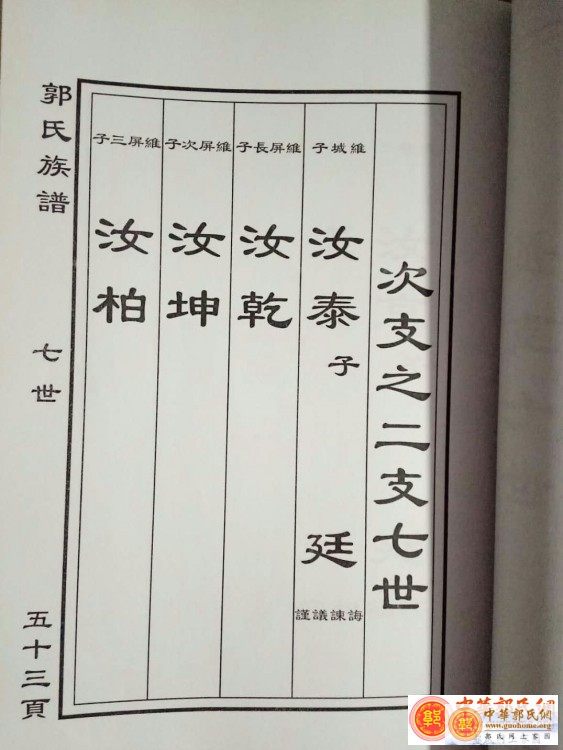 次支之二支七世
維城子
汝泰子
廷
誨諫議謹
維屏長子
汝乾
維屏次子
汝坤
維屏三子
汝柏
郭氏族譜
七世
五十三頁
中華郭氏網
www.guohome.org
郭氏网上家园